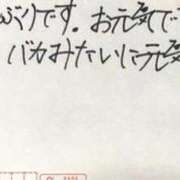 ぶりです。お元気で
バカみたいに元気